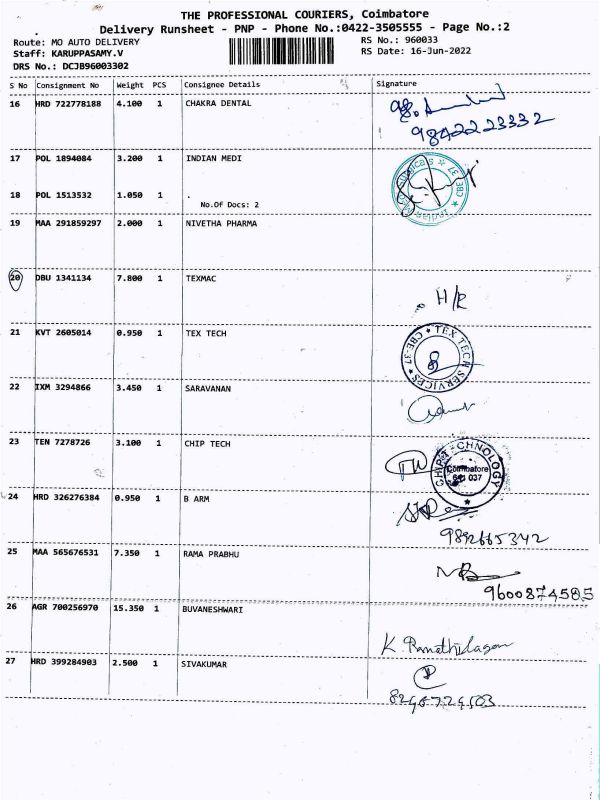 THE PROFESSIONAL COURIERS, Coimbatore
Delivery Runsheet - PNP - Phone No.:0422-3505555 - Page No.:2
Route: MO AUTO DELIVERY RS No.: 960033
Staff: KARUPPASAMY.V RS Date: 16-Jun-2022
DRS No.: DCJB96003302
S No Consignment No Weight PCS Consignee Details Signature
16 HRD 722778188 4.100 1 CHAKRA DENTAL
9842223332
17 POL 1894084 3.200 1 INDIAN MEDI
18 POL 1513532 1.050 1 .
No.Of Docs: 2
19 MAA 291859297 2.000 1 NIVETHA PHARMA
20 DBU 1341134 7.800 1 TEXMAC
H/R
21 KVT 2605014 0.950 1 TEX TECH
TEX TECH SERVICES CBE-37
22 IXM 3294866 3.450 1 SARAVANAN
23 TEN 7278726 3.100 1 CHIP TECH
CHIP TECHNOLOGY
Coimbatore
641 037
24 HRD 326276384 0.950 1 B ARM
9892665342
25 MAA 565676531 7.350 1 RAMA PRABHU
9600874585
26 AGR 700256970 15.350 1 BUVANESHWARI
27 HRD 399284903 2.500 1 SIVAKUMAR